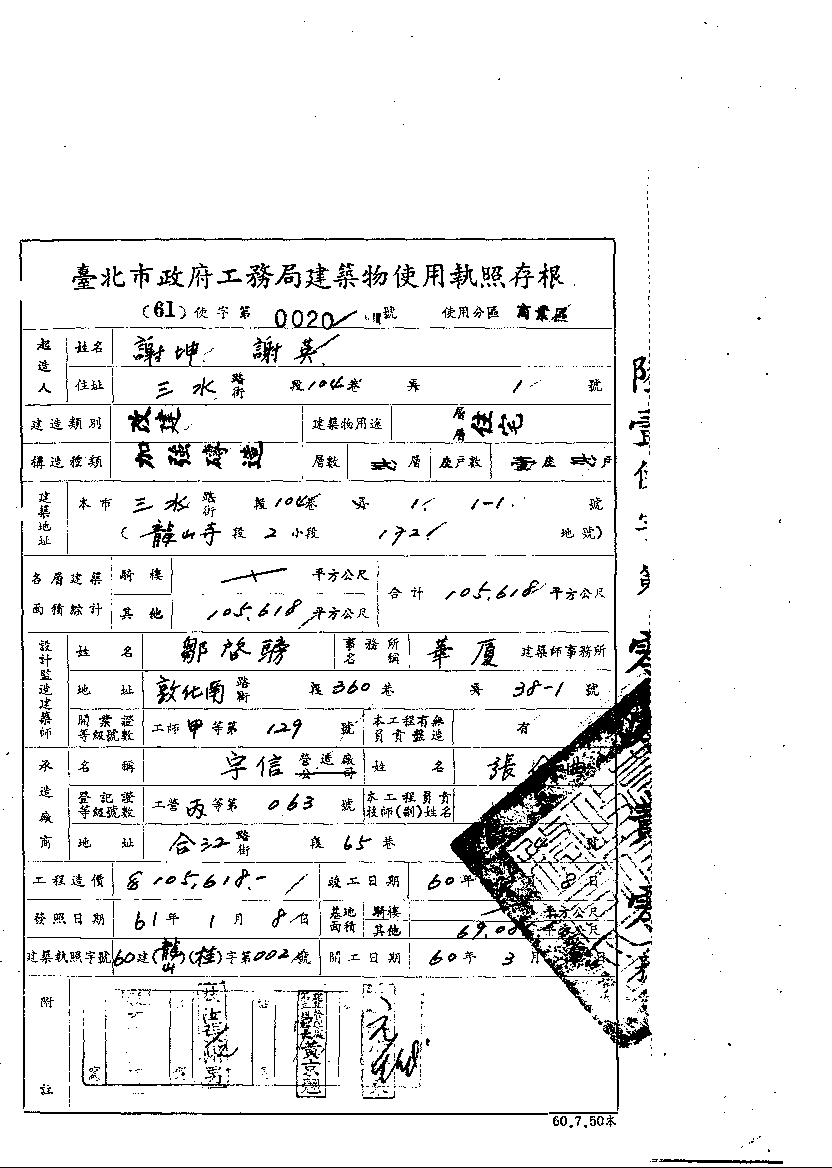 臺北市政府工務局建築物使用執照存根
(61)使字第 0020 號 使用分區 商業區
起造人 姓名 謝坤 謝英
住址 三水 路街 段104巷 弄 1 號
建造類別 改建 建築物用途 層層 住宅
構造種類 加強磚造 層數 弍層 座戶數 壹座 弍戶
建築地址 本市 三水 路街 段104巷 弄 1. 1-1. 號
(龍山寺 段 2 小段 172 地號)
各層建築面積綜計 騎樓 平方公尺 合計 105.618 平方公尺
其他 105.618 平方公尺
設計監造建築師 姓名 鄒啓騰 事務所名稱 華厦 建築師事務所
地址 敦化南 路街 段360巷 弄 38-1 號
開業證等級號數 工師甲等第 129 號 本工程有無負責監造 有
承造廠商 名稱 宇信 營造廠公司 姓名 張
登記證等級號數 工營丙等第 063 號 本工程負責技師(副)姓名
地址 合江 路街 段 65 巷 號
工程造價 105,618.- 竣工日期 60年 8日
發照日期 61年 1月 8日 基地面積 騎樓 平方公尺
其他 69.08 平方公尺
建築執照字號 60建(龍山)(桂)字第002號 開工日期 60年 3月
附註
黃京
60.7.50本